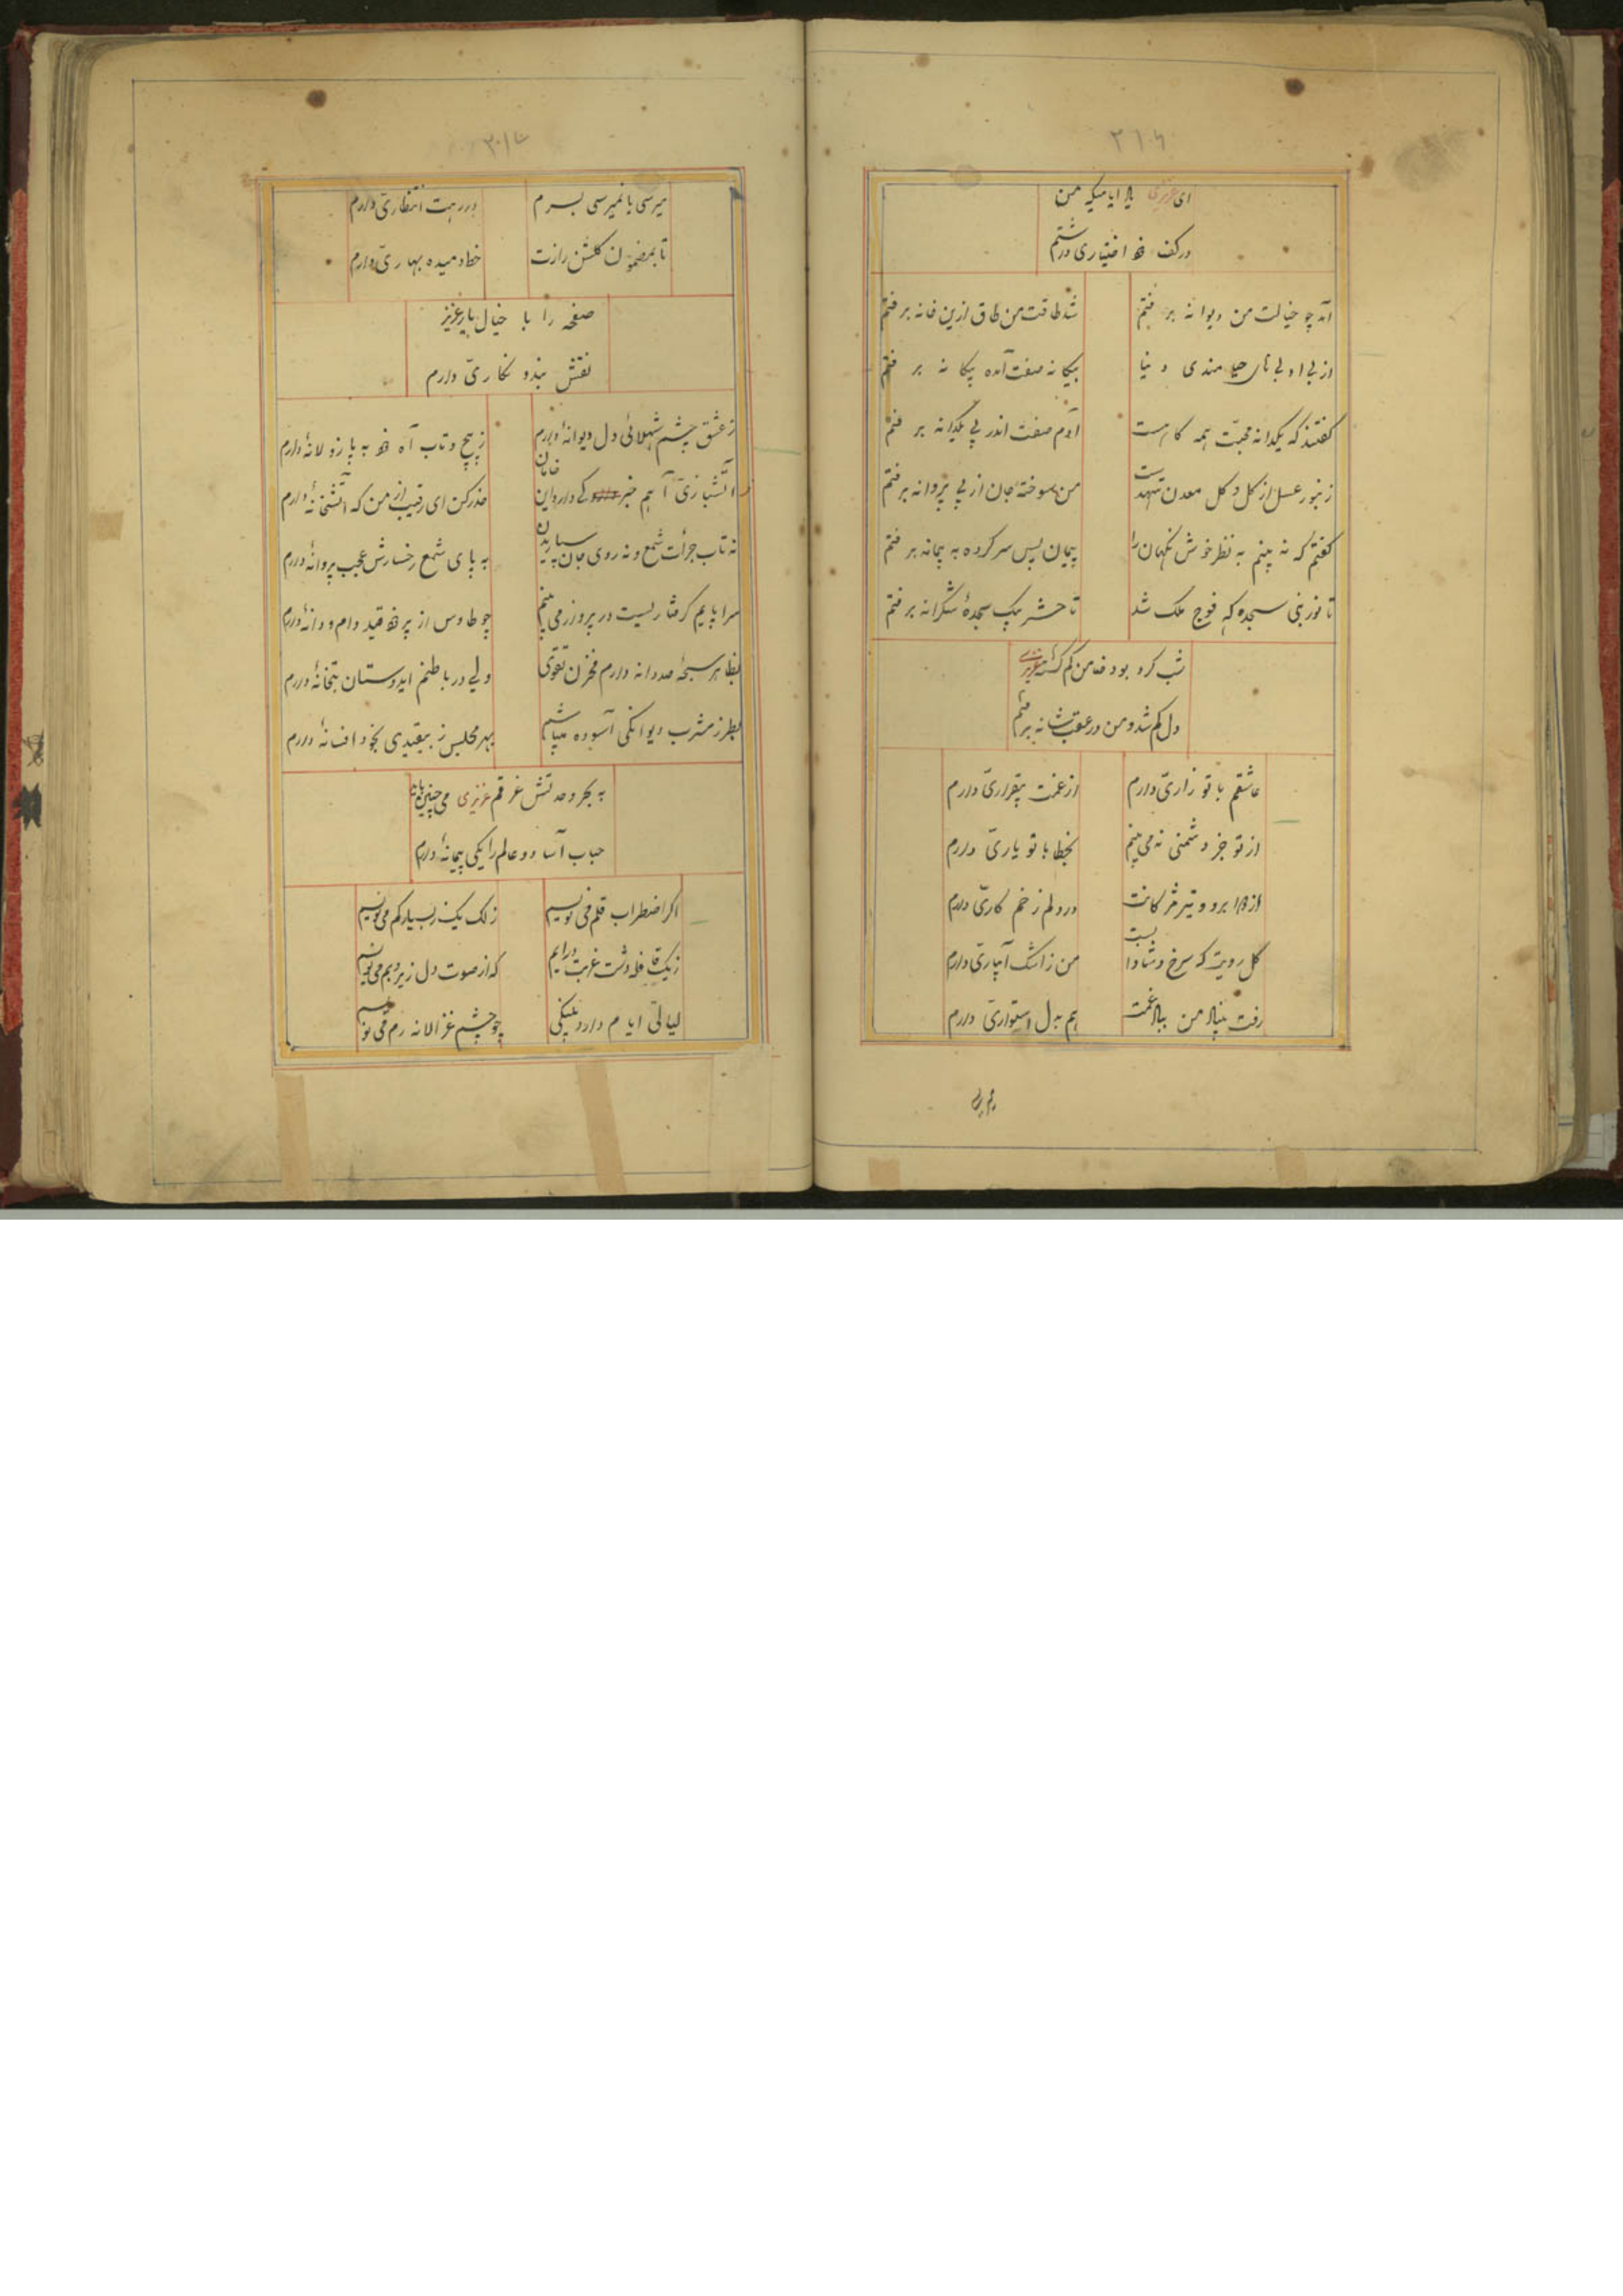 ای عزیزی یاد ایامیکه من
در کف خود اختیاری داشتم
آمد چو خیالت من دیوانه برفتم
شد طاقت من طاق ازین خانه برفتم
از بی ادبی های حیامندی دنیا
بیکانه صفت آمده بیکانه برفتم
کفتند که یکدانه محبت همه کار است
آدم صفت اندر پی یکدانه برفتم
زنبور عسل از کل و کل معدن شهد است
من سوخته جان از پی پروانه برفتم
کفتم که نه بینم به نظر خوش نکهان را
پیمان پس سر کرده به پیمانه برفتم
تا نور نبی سجده که فوج ملک شد
تا حشر بیک سجدهٔ شکرانه برفتم
شب کرد بود من کم کشته عزیزی
دل کم شد و من در عقبش نه برفتم
عاشقم با تو زاری دارم
از غمت بیقراری دارم
از تو جز دشمنی نه می بینم
بخطا با تو یاری دارم
از ابرو و تیر مژکانت
در دلم زخم کاری دارم
کل رویت که سرخ و شادابست
من ز اشک آبیاری دارم
رفت من غمت
هم به دل استواری دارم
میرسی یا نمیرسی بسرم
در رهت انتظاری دارم
تا بمضمون کلشن رازت
خط دمیده بهاری دارم
صفحه را با خیال یار عزیز
نقش بند و نکاری دارم
ز عشق چشم شهلائی دل دیوانهٔ دارم
ز پیچ و تاب آه خود به پا زولانهٔ دارم
ز آتشبازی آهم خبر کی دارد این خامان
حذر کن ای رقیب از من که آتشخانهٔ دارم
نه تاب جرأت شمع و نه روی جان سپاریدن
به پای شمع رخسارش عجب پروانهٔ دارم
سراپایم کرفتاریست در پرواز می بینم
چو طاوس از پر خود قید دام و دانهٔ دارم
بظاهر سبحهٔ صد دانه دارم مخزن تقوی
ولی در باطنم ایدوستان بتخانهٔ دارم
بطرز مشرب دیوانکی آسوده میباشم
بهر مجلس ز بیقیدی بخود افسانهٔ دارم
به بحر وحدتش غرقم عزیزی می
حباب آسا دو عالم را یکی پیمانهٔ دارم
اکر اضطراب قلم می نویسم
ز لک یک ز بسیار کم می نویسم
زیک قافله دشت غربت درایم
که از صوت دل زیر و بم می نویسم
لیالی ایام دارد پلنکی
چو چشم غزالانه رم می نویسم